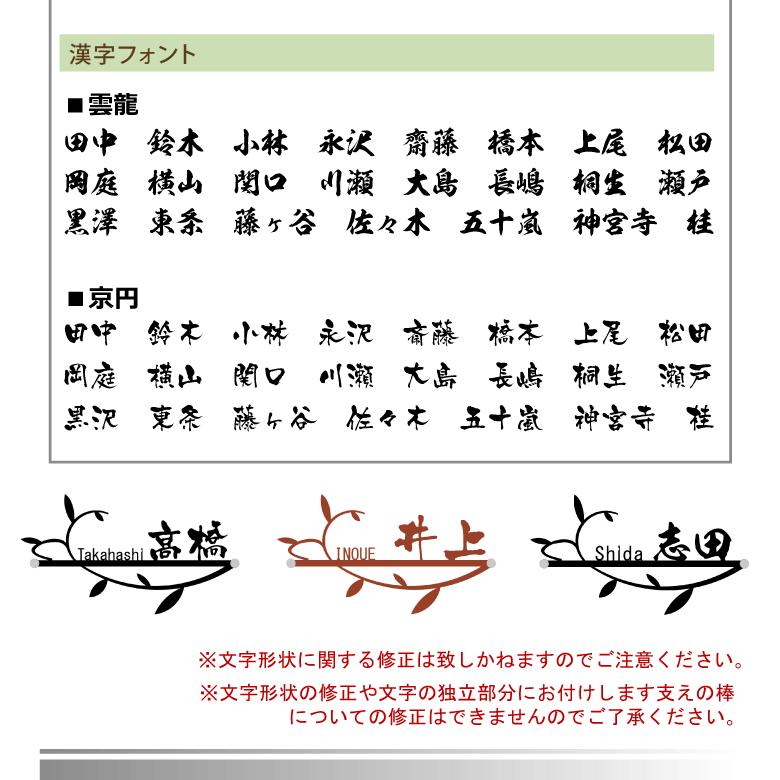 漢字フォント
■雲龍
田中 鈴木 小林 永沢 齋藤 橋本 上尾 松田
岡庭 横山 関口 川瀬 大島 長嶋 桐生 瀬戸
黒澤 東条 藤ヶ谷 佐々木 五十嵐 神宮寺 桂
■京円
田中 鈴木 小林 永沢 斎藤 橋本 上尾 松田
岡庭 横山 関口 川瀬 大島 長嶋 桐生 瀬戸
黒沢 東条 藤ヶ谷 佐々木 五十嵐 神宮寺 桂
Takahashi 高橋
INOUE 井上
Shida 志田
※文字形状に関する修正は致しかねますのでご注意ください。
※文字形状の修正や文字の独立部分にお付けします支えの棒
についての修正はできませんのでご了承ください。